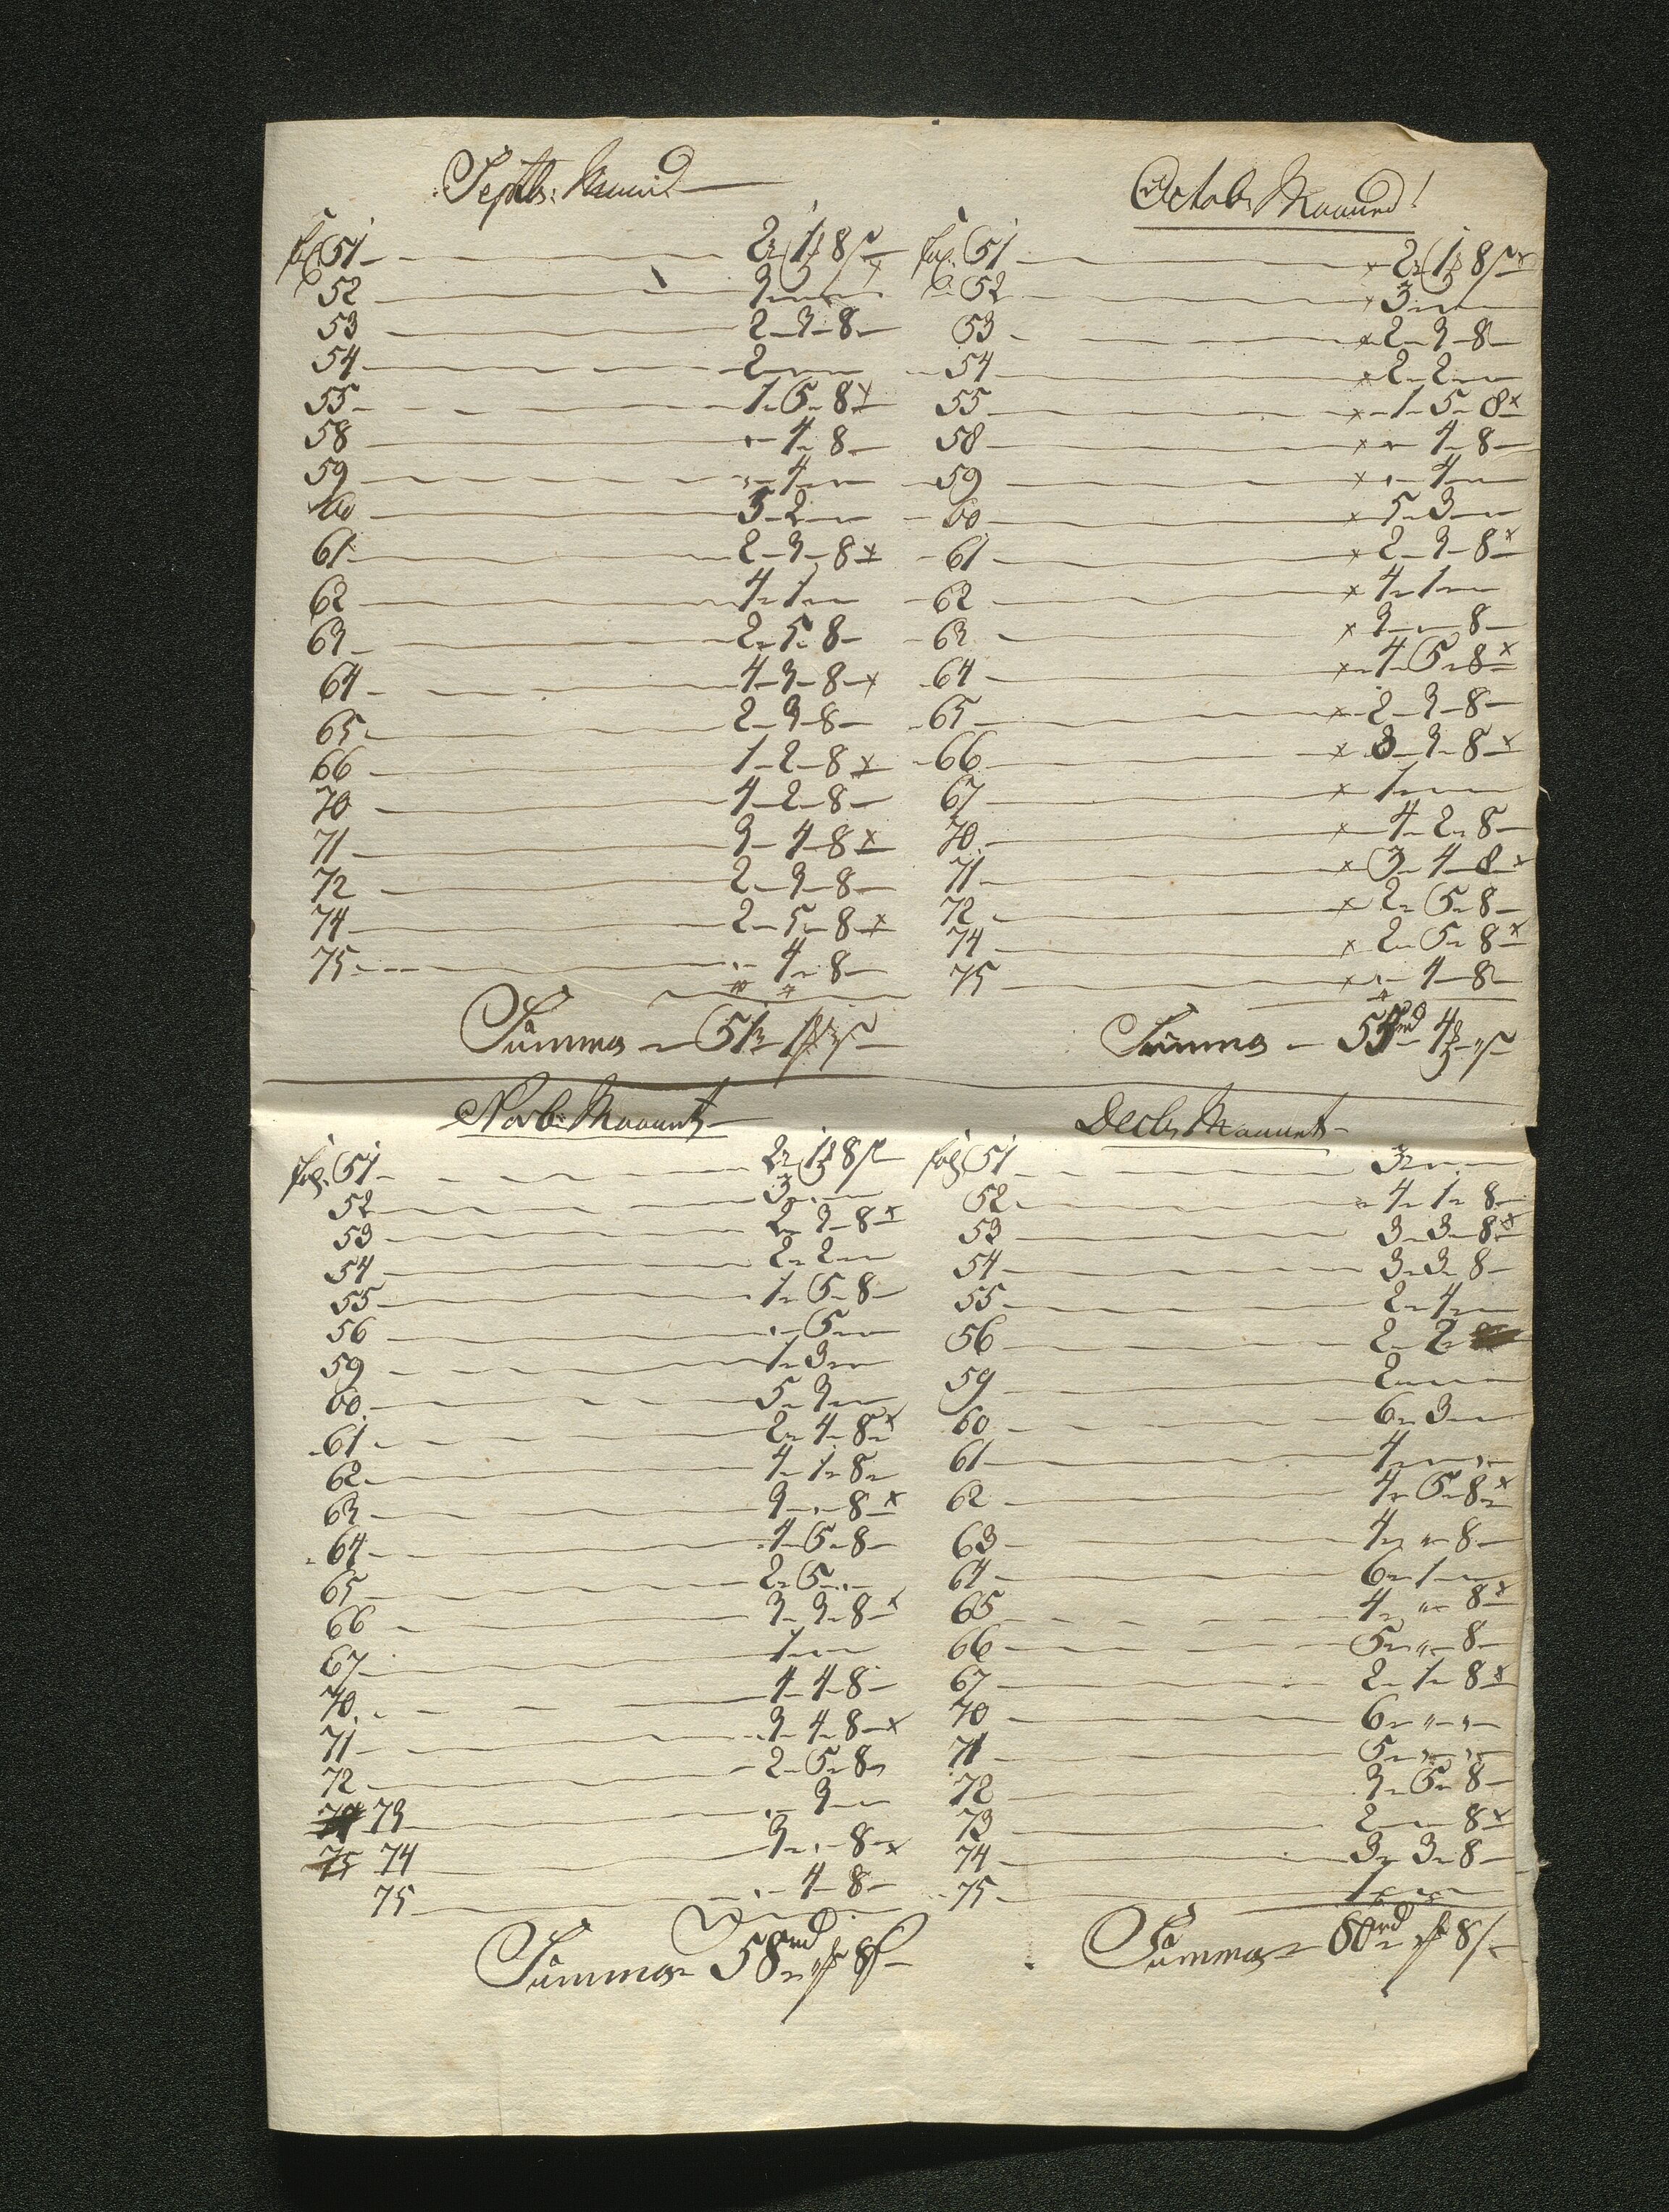 Septb: Maaned
fol. 51 2 rd 1 mk 8 s
52 3 " "
53 2 - 3 - 8
54 2 " "
55 1 - 5 - 8 x
58 " - 4 - 8
59 " - 4 "
60 5 - 2 "
61 2 - 3 - 8 x
62 4 - 1 "
63 2 - 5 - 8
64 4 - 3 - 8 x
65 2 - 3 - 8
66 1 - 2 - 8 x
70 4 - 2 - 8
71 3 - 4 - 8 x
72 2 - 3 - 8
74 2 - 5 - 8 x
75 " - 4 - 8
Summa 51
Octob: Maaned
fol. 51 x 2 rd 1 mk 8 s x
52 x 3 " "
53 x 2 - 3 - 8
54 x 2 - 2 "
55 x 1 - 5 - 8 x
58 x " - 4 - 8
59 x " - 4 "
60 x 5 - 3 "
61 x 2 - 3 - 8 x
62 x 4 - 1 "
63 x 3 - " - 8
64 x 4 - 5 - 8 x
65 x 2 - 3 - 8
66 x 3 - 3 - 8 x
67 x 1 " "
70 x 4 - 2 - 8
71 x 3 - 4 - 8 x
72 x 2 - 5 - 8
74 x 2 - 5 - 8 x
75 x " - 4 - 8
Summa - 55 rd 4 mk " s
Novb: Maanet
fol. 51 2 rd 1 mk 8 s
52 3 " "
53 2 - 3 - 8 x
54 2 - 2 "
55 1 - 5 - 8
56 " - 5 "
59 1 - 3 "
60 5 - 3 "
61 2 - 4 - 8 x
62 4 - 1 - 8
63 3 - " - 8 x
64 4 - 5 - 8
65 2 - 5 "
66 3 - 3 - 8 x
67 1 " "
70 4 - 4 - 8
71 3 - 4 - 8 x
72 2 - 5 - 8
73 " - 3 "
75 74 3 - " - 8 x
75 " - 4 - 8
Summa 58 rd " mk 8 s
Decb: Maanet
fol. 51 3 " "
52 4 - 1 - 8
53 3 - 3 - 8 x
54 3 - 3 - 8
55 2 - 4 "
56 2 - 2
59 2 " "
60 6 - 3 "
61 4 " "
62 4 - 5 - 8 x
63 4 - " - 8
64 6 - 1 "
65 4 - " - 8 x
66 5 - " - 8
67 2 - 1 - 8 x
70 6 - " - "
71 5 - " - "
72 3 - 5 - 8
73 2 - " - 8 x
74 3 - 3 - 8
75 1 " "
Summa - 80 rd " mk 8 s